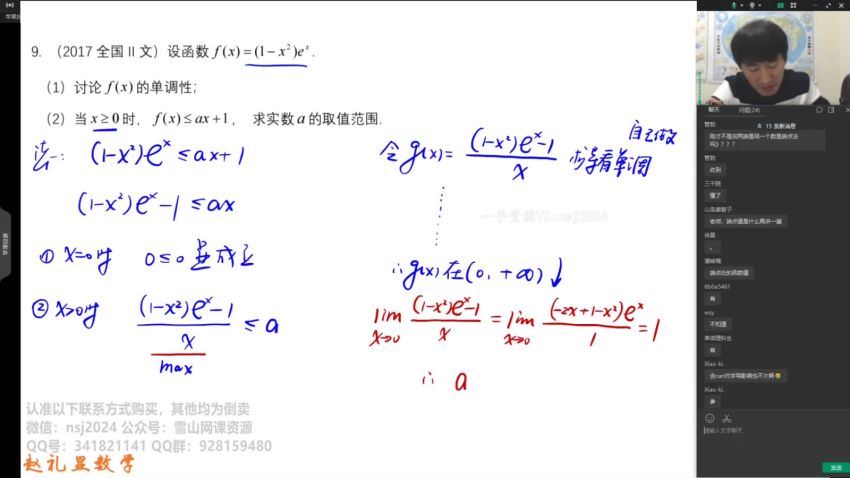 9. （2017 全国 II 文）设函数 f(x)=(1−x²)eˣ.
（1）讨论 f(x) 的单调性；
（2）当 x≥0 时， f(x)≤ax+1， 求实数 a 的取值范围.
法一: (1-x²)eˣ≤ax+1
(1-x²)eˣ-1≤ax
① x=0时 0≤0 显成立
② x>0时 ((1-x²)eˣ-1)/x ≤ a
max
令g(x)= ((1-x²)eˣ-1)/x 求导看单调
自己做
∴g(x)在(0, +∞)↓
lim x→0 ((1-x²)eˣ-1)/x = lim x→0 ((-2x+1-x²)eˣ)/1 =1
∴ a
一手资源VX:nsj2024
认准以下联系方式购买，其他均为倒卖
微信：nsj2024 公众号：雪山网课资源
QQ号：341821141 QQ群：928159480
赵礼显数学
聊天 问题(24)
15 条新消息
管勃
吗》？？？
管勃
收到
三千院
懂了
老师，端点值是什么再讲一遍
。
端点处的函数值
6b0a5461
有
wzy
不知道
有
Xiao ki.
会can对求导影响也不大啊
Xiao ki.
参
请输入文字聊天
发送